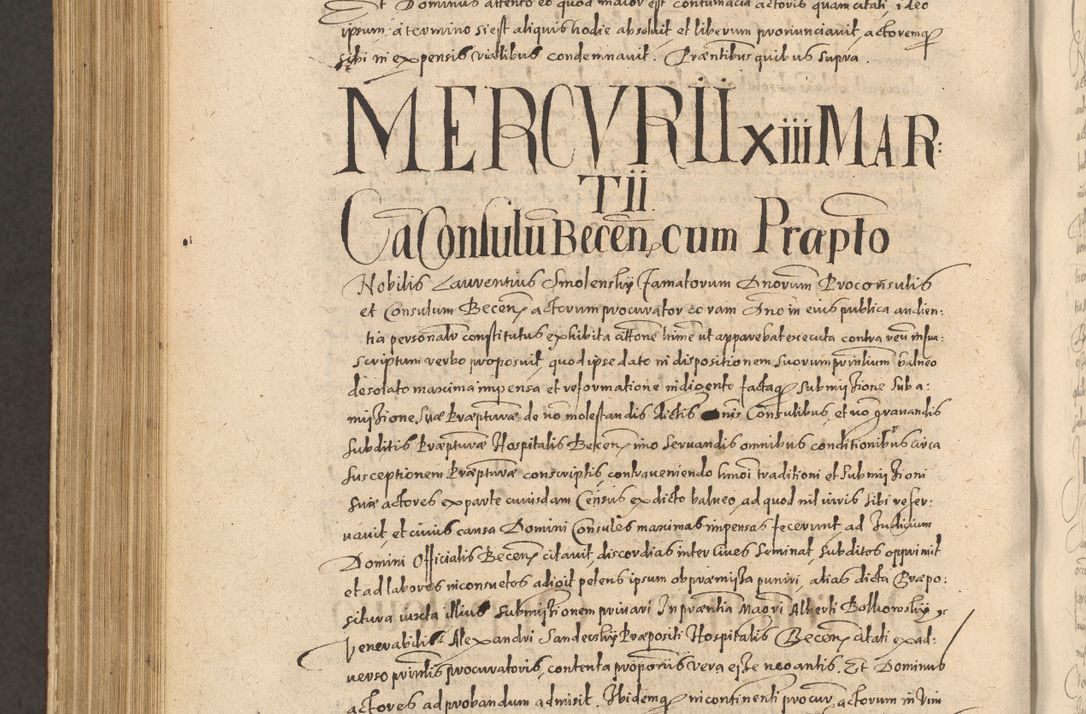 Et Dominus attento eo quod maior est contumacia actoris quam citati, ideo
ipsum à termino siest aliquis hodie absoluit et liberum pronunciauit, actoremq
sibi in expensis vitalibus condemnauit. Præntibus quibus supra.
MERCVRII xiii MAR:
TII
Cã Consulũ Becen̄, cum Præpto
Nobilis Laurentius Smolenskÿ famatorum Dnorum Proconsulis
et Consulum Becen̄, actorum procurator coram Dno in eius publica audien:
tia personalr constitutus exhibita cittone hmẽ ut apparebat executa contra reũ infra:
scriptum verbo proposuit, quod ipse dato in dispositionem suorum prinlium balneo
desolato maxima impensa et reformatione indigente factaq submissione sub a:
missione suæ Præpturæ de nõ molestandis dictis Dnis Consulibus, et nõ grauandis
subditis Præpturæ Hospitalis Becen̄, imo seruandis omnibus conditionibus circa
susceptionem Præpturæ conscriptis, contraueniendo hmõi traditioni et submissioni
suæ actores ex parte cuiusdam Census ex dicto balneo, ad quod nil iuris sibi reser:
uauit, et cuius causa Domini Consules maximas impensas fecerunt, ad Iudicium
Domini Officialis Becen̄, citauit, discordias inter Ciues seminat, subditos opprimit
et ad labores inconsuetos adigit petens ipsum ob præmissa puniri, alias dicta Præpo:
situra iuxta illius submissionem priuari In præntia Magri Alberti
Venerabilis Alexandri Sandecskÿ Præpositi Hospitalis Becen̄, citati ex ad:
uerso prinlis procuratoris, contenta proponis vera esse negantis. Et Dominus
actores ad probandum admisit. Ibidemq in continenti procur actorum in vim